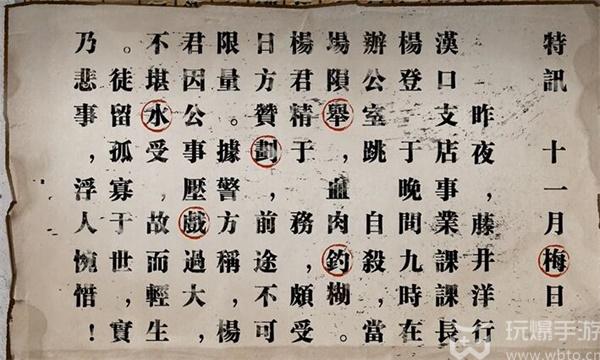 特訊 十一月梅日
昨夜,藤井洋行
漢口支店事業課課長
楊登 于晚間九時在
辦公室跳 自殺,當
場隕舉,血肉釣糊。
楊君精于 務,頗受
日方贊劃,前途,不可
限量。據警方稱,楊
君因公事壓戲過大,
不堪水受,故而輕生,
。徒留孤寡于世,實
乃悲事,浮人惋惜!
玩爆手游
www.wbto.cn